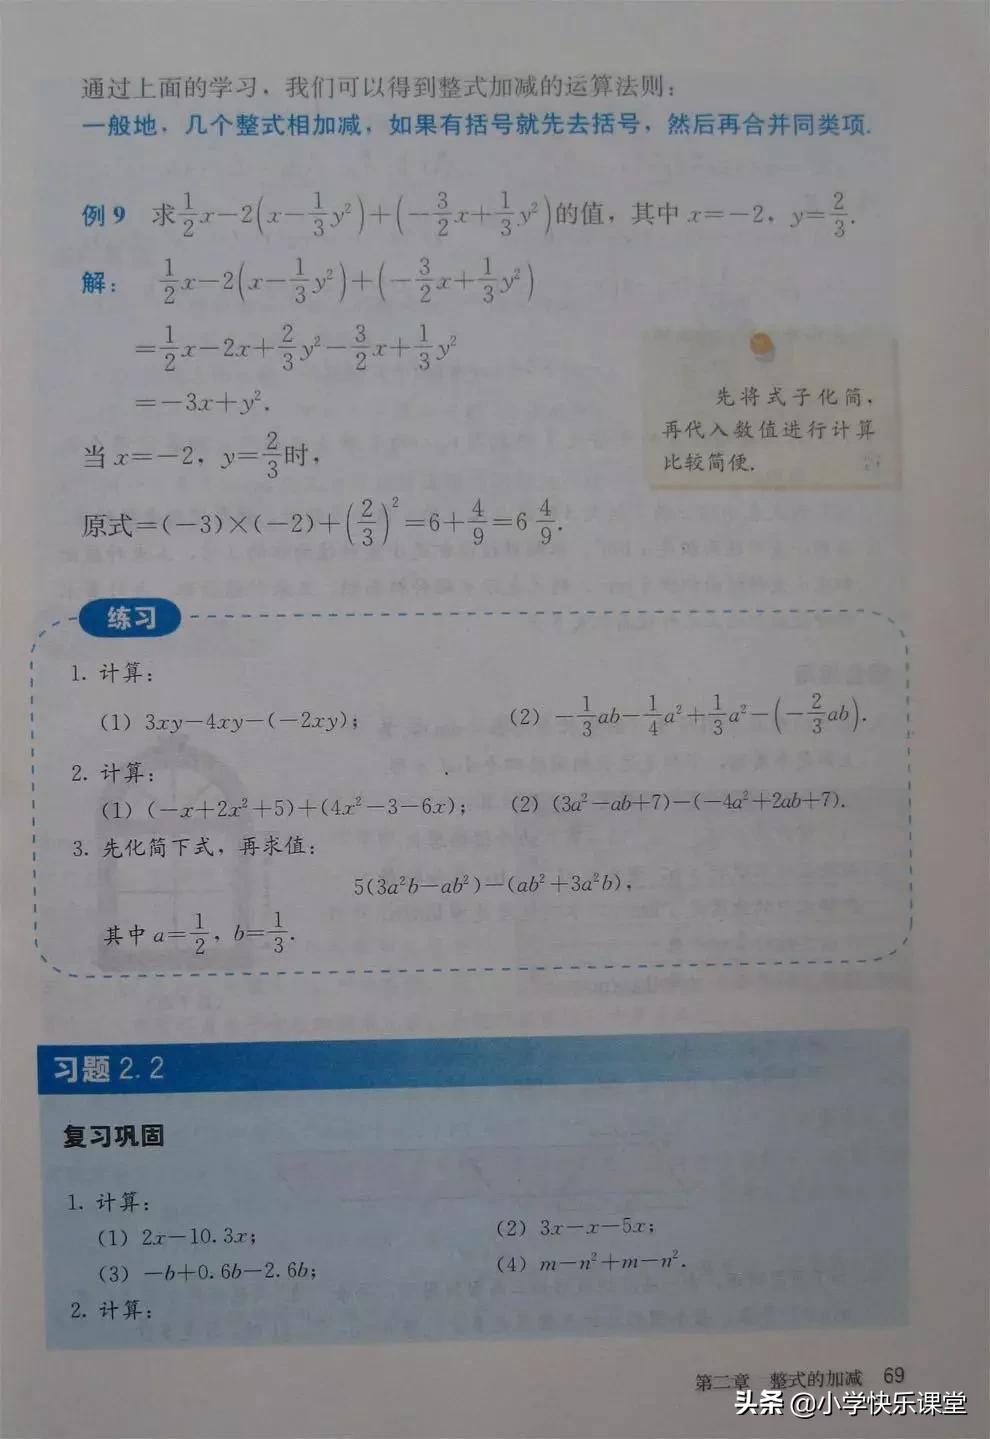 通过上面的学习，我们可以得到整式加减的运算法则：
一般地，几个整式相加减，如果有括号就先去括号，然后再合并同类项.
例9 求1/2x－2(x－1/3y²)＋(－3/2x＋1/3y²)的值，其中x＝－2，y＝2/3.
解： 1/2x－2(x－1/3y²)＋(－3/2x＋1/3y²)
＝1/2x－2x＋2/3y²－3/2x＋1/3y²
＝－3x＋y².
先将式子化简，
再代入数值进行计算
比较简便.
当x＝－2，y＝2/3时，
原式＝(－3)×(－2)＋(2/3)²＝6＋4/9＝6 4/9.
练习
1. 计算：
(1) 3xy－4xy－(－2xy)； (2) －1/3ab－1/4a²＋1/3a²－(－2/3ab).
2. 计算：
(1) (－x＋2x²＋5)＋(4x²－3－6x)； (2) (3a²－ab＋7)－(－4a²＋2ab＋7).
3. 先化简下式，再求值：
5(3a²b－ab²)－(ab²＋3a²b)，
其中a＝1/2，b＝1/3.
习题2.2
复习巩固
1. 计算：
(1) 2x－10.3x； (2) 3x－x－5x；
(3) －b＋0.6b－2.6b； (4) m－n²＋m－n².
2. 计算：
第二章 整式的加减 69
头条 @小学快乐课堂